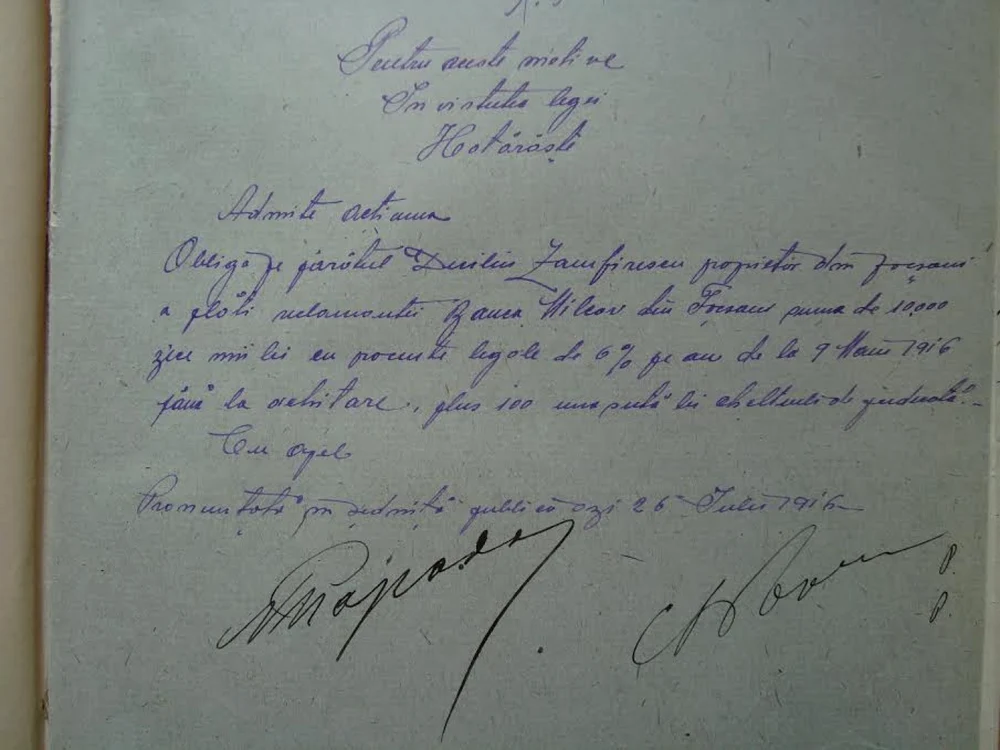 Pentru aceste motive
In virtutea legei
Hotărăște
Admite acțiunea
Obligă pe pârâtul Duiliu Zamfirescu propietar din Focșani
a plăti reclamantei Banca Milcov din Focșani suma de 10,000
zece mii lei cu procente legale de 6% pe an de la 9 1916
până la achitare, plus 100 una sută lei cheltueli de judecată.
Cu apel
Pronunțată în ședință publică azi 26 Iulie 1916